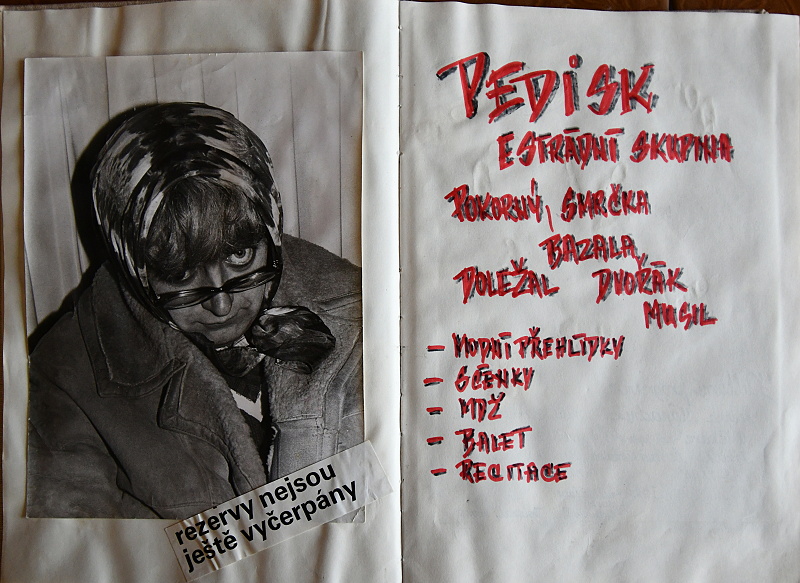 rezervy nejsou
ještě vyčerpány
PEDISK
ESTRÁDNÍ SKUPINA
POKORNÝ, SMRČKA
BAZALA,
DOLEŽAL DVOŘÁK
MUSIL
- MODNÍ PŘEHLÍDKY
- SCÉNKY
- MDŽ
- BALET
- RECITACE